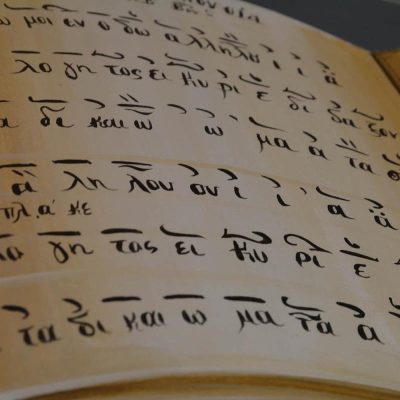 μοι εν ο δω α λληλου ι ι α
λο γη τος ει κυ ρι ε δι δα ξον
α δι και ω ω μα α τα
α λη λου ου ι ι α α
πλ. α' κε
λο γη τος ει κυ ρι ε
τα δι και ω μα τα α